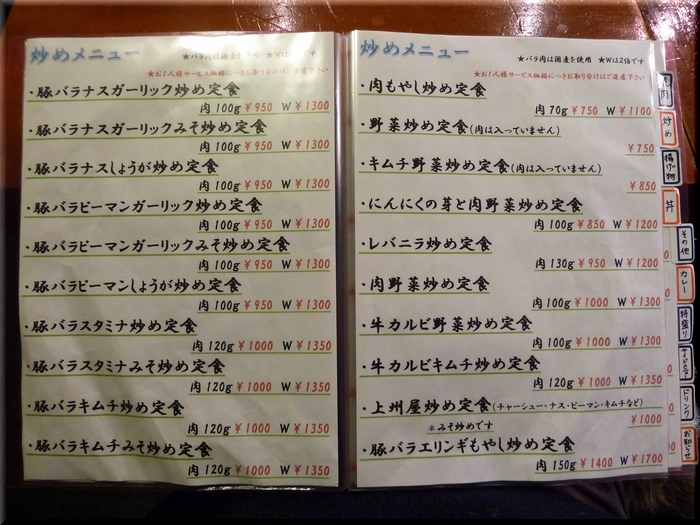 炒めメニュー
★バラ肉は国産を使用 ★Wは2倍です
★お1人様サービス価格につきお取り分けはご遠慮下さい
・豚バラナスガーリック炒め定食
肉 100g ¥950 W ¥1300
・豚バラナスガーリックみそ炒め定食
肉 100g ¥950 W ¥1300
・豚バラナスしょうが炒め定食
肉 100g ¥950 W ¥1300
・豚バラピーマンガーリック炒め定食
肉 100g ¥950 W ¥1300
・豚バラピーマンガーリックみそ炒め定食
肉 100g ¥950 W ¥1300
・豚バラピーマンしょうが炒め定食
肉 100g ¥950 W ¥1300
・豚バラスタミナ炒め定食
肉 120g ¥1000 W ¥1350
・豚バラスタミナみそ炒め定食
肉 120g ¥1000 W ¥1350
・豚バラキムチ炒め定食
肉 120g ¥1000 W ¥1350
・豚バラキムチみそ炒め定食
肉 120g ¥1000 W ¥1350
炒めメニュー
★バラ肉は国産を使用 ★Wは2倍です
★お1人様サービス価格につきお取り分けはご遠慮下さい
・肉もやし炒め定食
肉 70g ¥750 W ¥1100
・野菜炒め定食(肉は入っていません)
¥750
・キムチ野菜炒め定食(肉は入っていません)
¥850
・にんにくの芽と肉野菜炒め定食
肉 100g ¥850 W ¥1200
・レバニラ炒め定食
肉 130g ¥950 W ¥1200
・肉野菜炒め定食
肉 100g ¥1000 W ¥1300
・牛カルビ野菜炒め定食
肉 100g ¥1000 W ¥1300
・牛カルビキムチ炒め定食
肉 120g ¥1000 W ¥1350
・上州屋炒め定食(チャーシュー・ナス・ピーマン・キムチなど)
※みそ炒めです ¥1000
・豚バラエリンギもやし炒め定食
肉 150g ¥1400 W ¥1700
炒め
揚げ物
丼
その他
カレー
特盛り
サイドメニュー
ドリンク
お知らせ